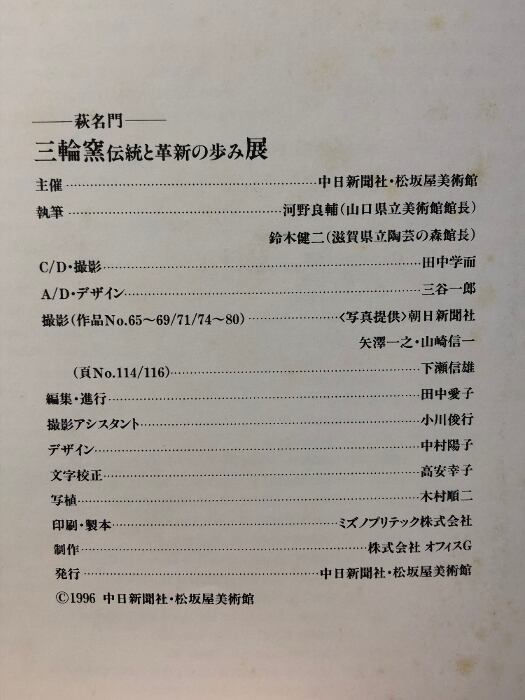 ──萩名門──
三輪窯伝統と革新の歩み展
主催……………………………中日新聞社・松坂屋美術館
執筆……………………………河野良輔(山口県立美術館館長)
鈴木健二(滋賀県立陶芸の森館長)
C/D・撮影……………………………田中学而
A/D・デザイン……………………………三谷一郎
撮影(作品No.65〜69/71/74〜80)……………〈写真提供〉朝日新聞社
矢澤一之・山崎信一
(頁No.114/116)……………………………下瀬信雄
編集・進行……………………………田中愛子
撮影アシスタント……………………………小川俊行
デザイン……………………………中村陽子
文字校正……………………………高安幸子
写植……………………………木村順二
印刷・製本……………………………ミズノプリテック株式会社
制作……………………………株式会社 オフィスG
発行……………………………中日新聞社・松坂屋美術館
©1996 中日新聞社・松坂屋美術館